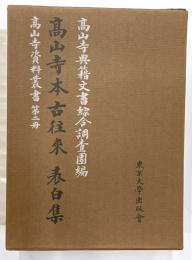 高山寺典籍文書綜合調査團編
高山寺本古往来 表白集
高山寺資料叢書 第二冊
東京大學出版會